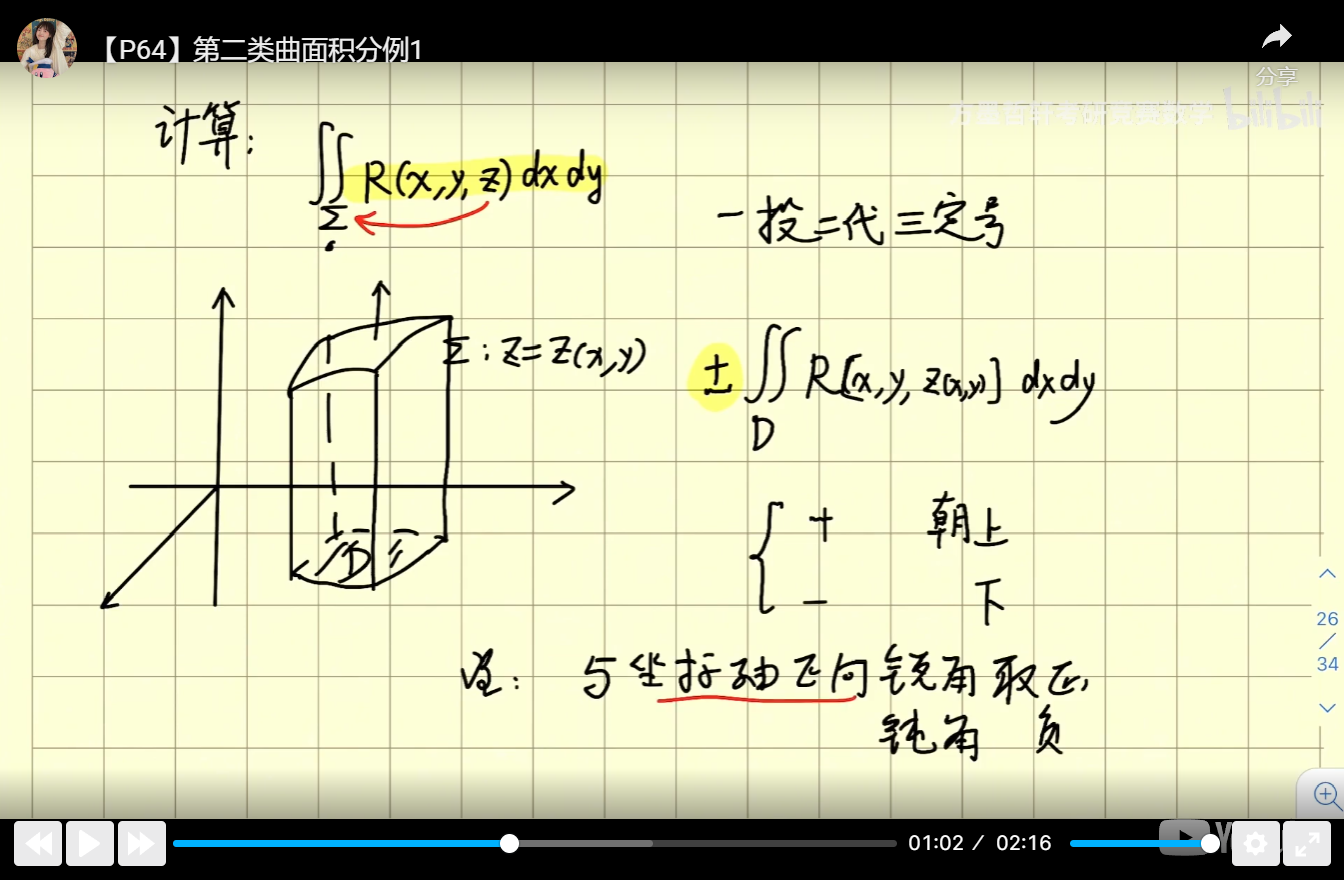 【P64】第二类曲面积分例1
分享
bilibili
计算:
∬ R(x,y,z) dx dy
Σ
一投二代三定号
Σ : z = z(x,y)
± ∬ R[x, y, z(x,y)] dxdy
D
D
+ 朝上
- 下
注: 与坐标轴正向锐角取正,
钝角 负
26
/
34
01:02 / 02:16